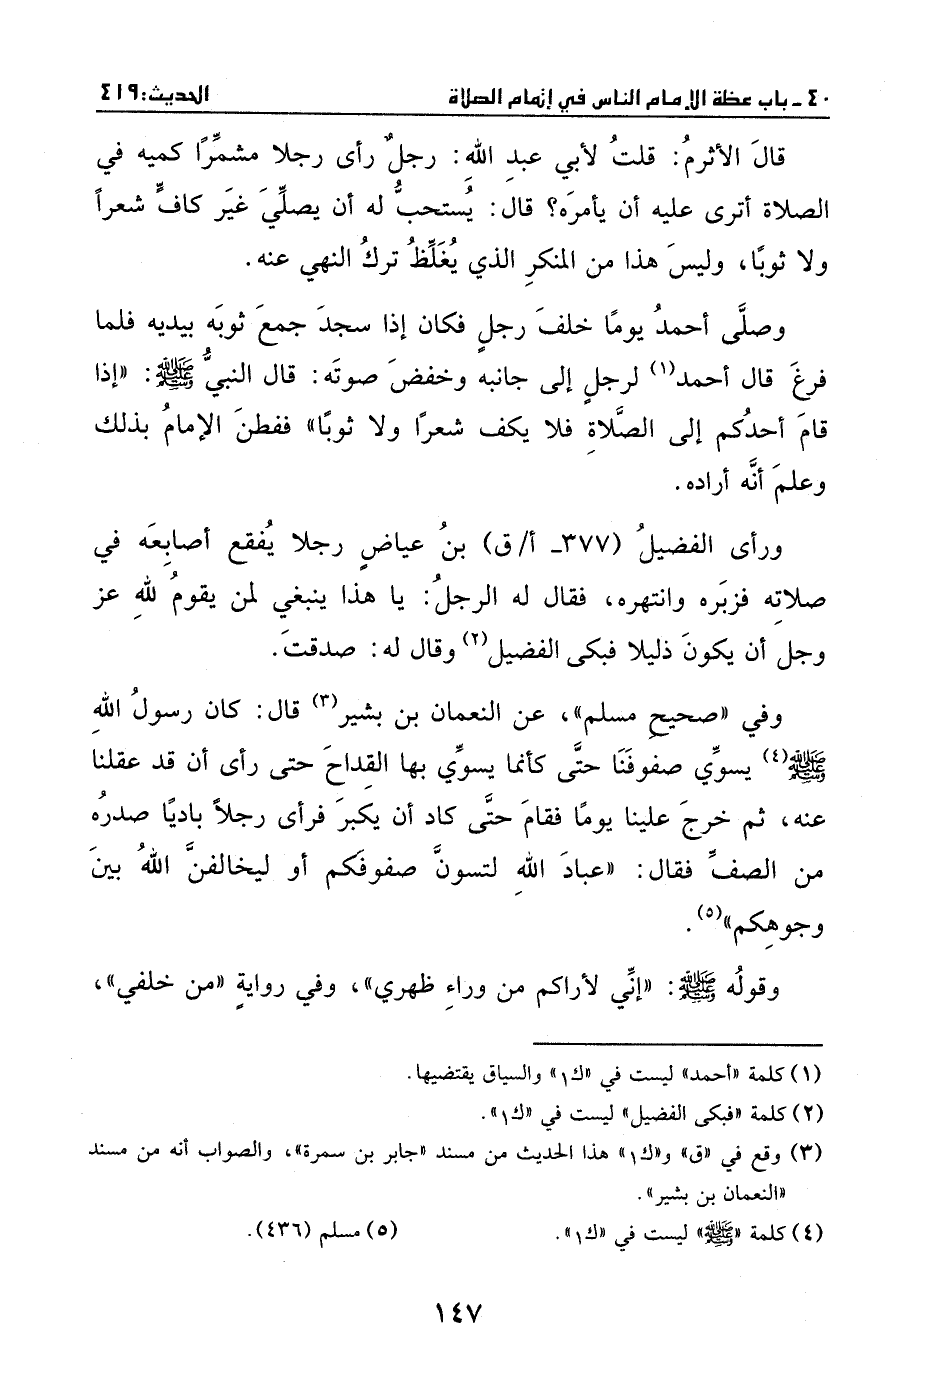 ٤٠ـ باب عظة الإمام الناس في إتمام الصلاة الحديث:٤١٩
قالَ الأثرمُ: قلتُ لأبي عبدِ اللهِ: رجلٌ رأى رجلا مشمِّرًا كميه في
الصلاة أترى عليه أن يأمرَه؟ قال: يُستحبُّ له أن يصلِّيَ غيَر كافٍّ شعراً
ولا ثوبًا، وليسَ هذا من المنكرِ الذي يُغَلِّظُ تركُ النهي عنه.
وصلَّى أحمدُ يومًا خلفَ رجلٍ فكان إذا سجدَ جمعَ ثوبَه بيديه فلما
فرغَ قال أحمد(١) لرجلٍ إلى جانبه وخفضَ صوتَه: قال النبيُّ ﷺ: «إذا
قامَ أحدُكم إلى الصَّلاةِ فلا يكف شعرًا ولا ثوبًا» ففطنَ الإمامُ بذلك
وعلمَ أنَّه أراده.
ورأى الفضيلُ (٣٧٧ـ أ/ق) بنُ عياضٍ رجلا يُفقع أصابِعَه في
صلاتِه فزبَره وانتهره، فقال له الرجلُ: يا هذا ينبغي لمن يقومُ للهِ عز
وجل أن يكونَ ذليلا فبكى الفضيل(٢) وقال له: صدقتَ.
وفي «صحيحِ مسلم»، عن النعمان بن بشير(٣) قال: كان رسولُ اللهِ
ﷺ(٤) يسوِّي صفوفَنَا حتَّى كأنما يسوِّي بها القِداحَ حتى رأى أن قد عقلنا
عنه، ثم خرجَ علينا يومًا فقامَ حتَّى كاد أن يكبرَ فرأى رجلاً باديًا صدرُه
من الصفِّ فقال: «عبادَ اللهِ لتسونَّ صفوفَكم أو ليخالفنَّ اللهُ بينَ
وجوهِكم»(٥).
وقولُه ﷺ: «إنِّي لأراكم من وراءِ ظهري»، وفي روايةٍ «من خلفي»،
(١) كلمة «أحمد» ليست في «ك١» والسياق يقتضيها.
(٢) كلمة «فبكى الفضيل» ليست في «ك١».
(٣) وقع في «ق» و«ك١» هذا الحديث من مسند «جابر بن سمرة»، والصواب أنه من مسند
«النعمان بن بشير».
(٤) كلمة «ﷺ» ليست في «ك١». (٥) مسلم (٤٣٦).
١٤٧